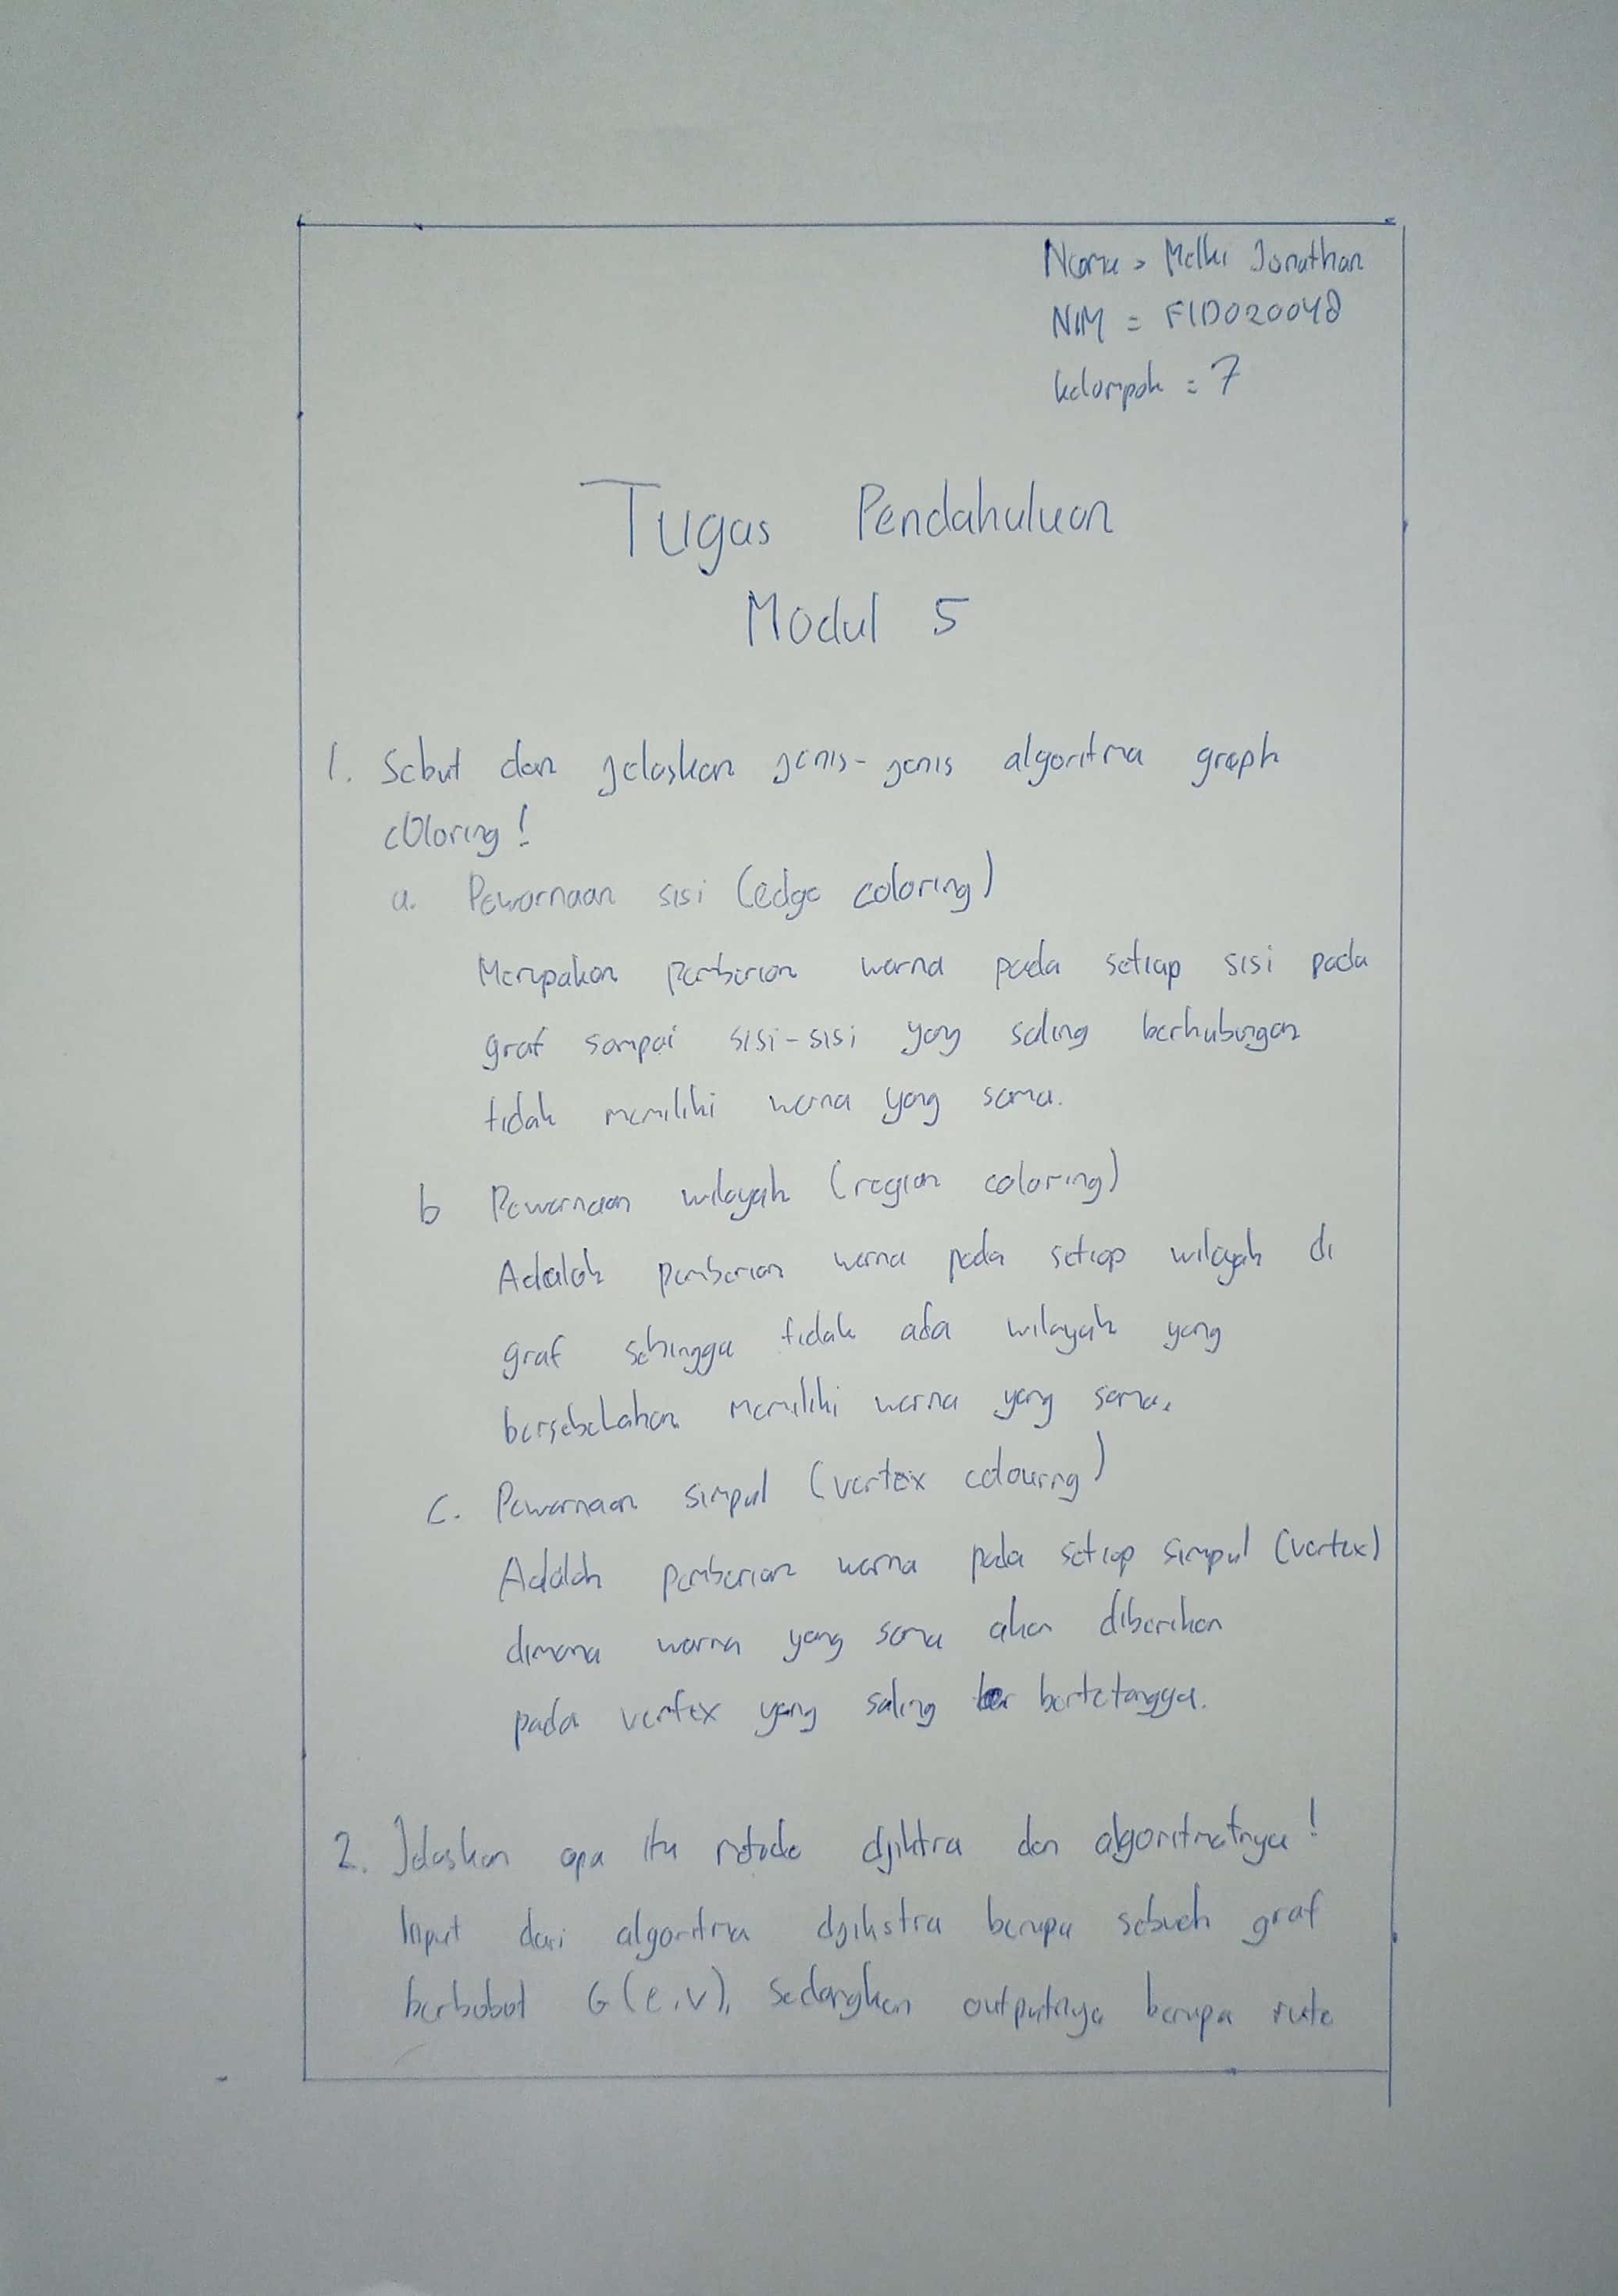 Nama = Melki Jonathan
NIM = F1D020048
kelompok = 7
Tugas Pendahuluan
Modul 5
1. Sebut dan jelaskan jenis-jenis algoritma graph
coloring!
a. Pewarnaan sisi (edge coloring)
Merupakan pemberian warna pada setiap sisi pada
graf sampai sisi-sisi yang saling berhubungan
tidak memiliki warna yang sama.
b Pewarnaan wilayah (region coloring)
Adalah pemberian warna pada setiap wilayah di
graf sehingga tidak ada wilayah yang
bersebelahan memiliki warna yang sama.
c. Pewarnaan simpul (vertex colouring)
Adalah pemberian warna pada setiap simpul (vertex)
dimana warna yang sama akan diberikan
pada vertex yang saling bertetangga.
2. Jelaskan apa itu metode djiktra dan algoritmatnya!
Input dari algoritma djikstra berupa sebuah graf
berbobot G(e,v), sedangkan outputnya berupa rute